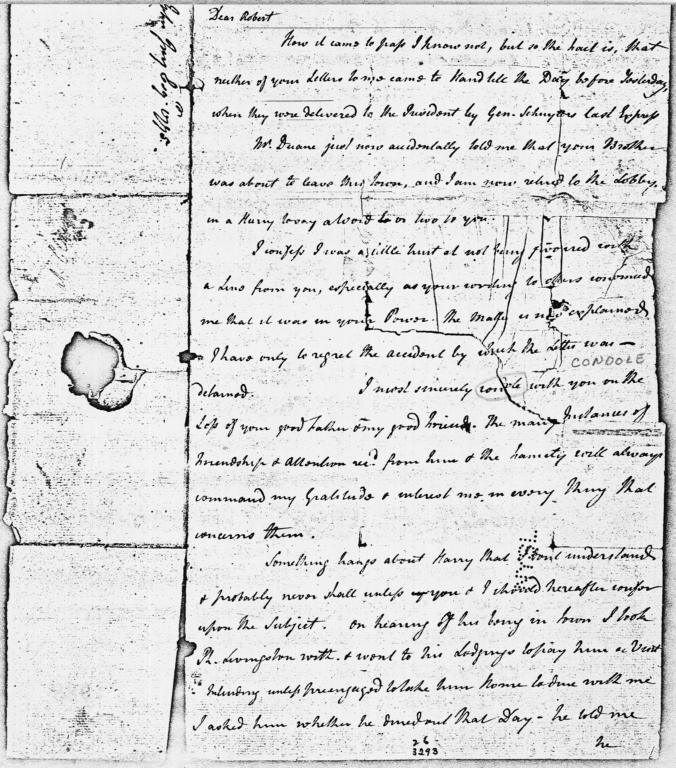 Dear Robert
How it came to pass I know not, but so the fact is, that
neither of your Letters to me came to Hand till the Day before Yesterday,
when they were delivered to the President by Gen. Schuylers last Express
Mr. Duane just now accidentally told me that your Brother
was about to leave this Town, and I am now retired to the Lobby,
in a Hurry to say a Word or two to you.
I confess I was a little hurt at not being favoured with
a Line from you, especially as your writing to others convinced
me that it was in your Power. The Matter is now explained
& I have only to regret the accident by which the Letter was —
CONDOLE
detained. I most sincerely condole with you on the
Loss of your good Father & my good Friend. The many Instances of
Friendship & Attention recd. from him & the Family will always
command my Gratitude & interest me in every Thing that
concerns them.
Something hangs about Harry that I dont understand
& probably never shall unless you & I should hereafter confer
upon the Subject. On hearing of his being in Town I took
Ph. Livingston with & went to his Lodgings to pay him a Visit
Intending unless preengaged to take him Home to dine with me
I asked him whether he dined out that Day – he told me
he
26
3293